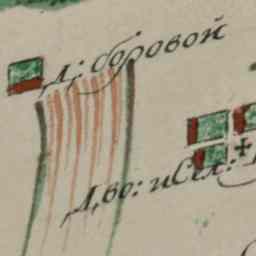 Д: боровой
Д,во: и Сел: